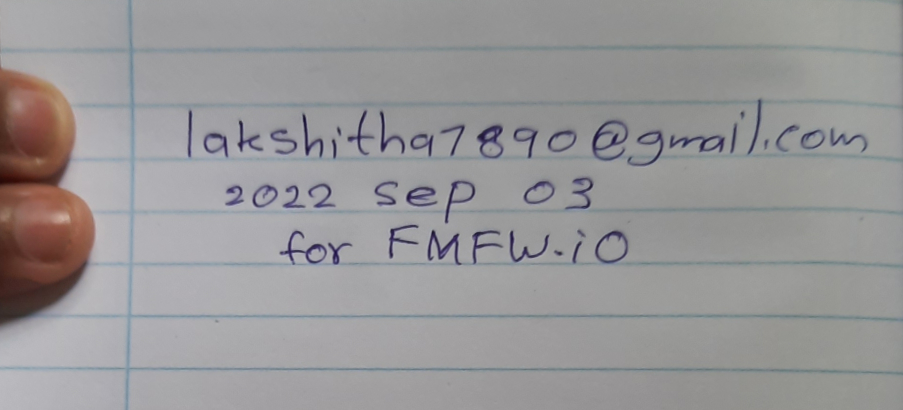 lakshitha7890@gmail.com
2022 sep 03
for FMFW.io